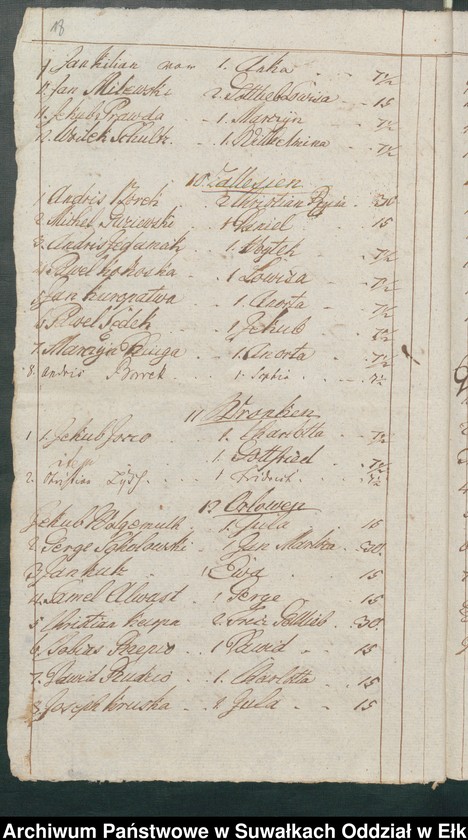 18
9. Jan Kilian 1. Anha 7½
10. Jan Milewski 2. Gottlieb Lowisa 15
11. Jekub Prawda 1. Marczin 7½
12. Wilek Schulk. 1. Wilhelmina 7½
10 Zallesien
1 Andris Borek 2 Christian 30
2 Michel Guziewski 1 Daniel 15
3. Andris 1. Woytek 7½
4. Pawel Kokoska 1 Lowisa 7½
5. Jan Kuropatwa 1. Anorta 7½
6 Pawel 1 Jekub 7½
7. Marczin 1. Anorta 7½
8. Andris Borrek 1. Sophia 7½
11 Wronken
1 1. Jekub 1. Charlotta 7½
1. Gottfried 7½
2. Christian Lysch 1 Fridrich 7½
12 Orlowen
Jekub Wolgemuth 1. Jula 15
2. Gerge Sokolowski Jan Marka 30
3 Jan Kuk 1 Ewa 15
4. Samel 1 Gerge 15
5 Christian 2. Gottlieb 30
6. Tobias 1 Dawid 15
7. Dawid 1. Charlotta 15
8. Joseph Kruska 1. Jula 15
Archiwum Państwowe w Suwałkach Oddział w Ełk